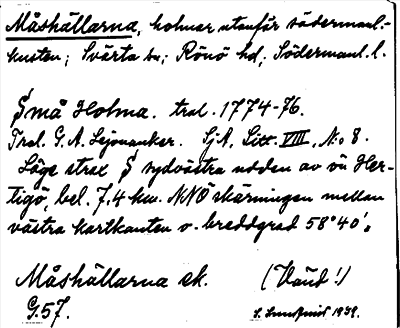 Måshällarna, holmar utanför södermanl.-
kusten; Svärta sn; Rönö hd; Södermanl. l.
Små Holma. trol. 1774-76.
Trol. G. A. Lejonanker. SjA, Litt. VIII, No 8.
Läge strax S sydvästra udden av ön Her-
tigö, bel. 7,4 km. NNÖ skärningen mellan
västra kartkanten o. breddgrad 58°40'.
Måshällarna sk. (Vänd!)
G.57. S. 1939.